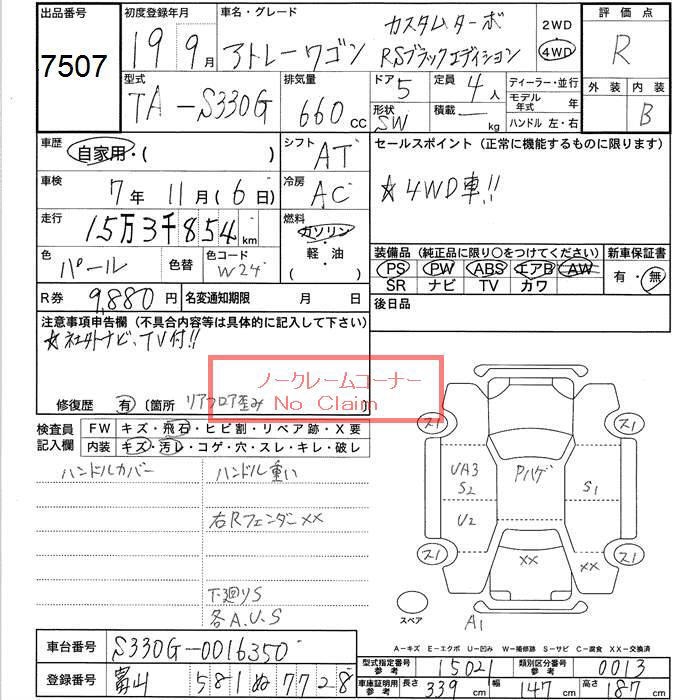 出品番号 7507
初度登録年月 19年 9月
車名・グレード アトレーワゴン カスタムターボ RSブラックエディション
2WD 4WD
評価点 R
外装 内装 B
型式 TA-S330G
排気量 660 cc
ドア 5 定員 4人
形状 SW 積載 — kg
ディーラー・並行
モデル年式 年
ハンドル 左・右
車歴 自家用・( )
シフト AT
セールスポイント (正常に機能するものに限ります)
☆4WD車!!
車検 7年 11月(6日)
冷房 AC
走行 15万3千854 km
燃料 ガソリン・軽・油 ( )
色 パール 色替 色コード W24
装備品 (純正品に限り○をつけてください) 新車保証書
PS PW ABS エアB AW
SR ナビ TV カワ
有・無
R券 9,880円 名変通知期限 月 日
後日品
注意事項申告欄 (不具合内容等は具体的に記入して下さい)
☆社外ナビ、TV付!!
ノークレームコーナー
No Claim
修復歴 有 〔箇所 リアフロア歪み
検査員記入欄
FW キズ・飛石・ヒビ割・リペア跡・X要
内装 キズ・汚レ・コゲ・穴・スレ・キレ・破レ
ハンドルカバー ハンドル重い
右Rフェンダーxx
下廻りS
各A.U.S
ス1 ス1
UA3 S2 Pハゲ S1
U2
ス1 xx xx ス1
スペア A1
A−キズ E−エクボ U−凹み W−補修跡 S−サビ C−腐食 XX−交換済
車台番号 S330G-0016350
登録番号 富山 581 ぬ 7728
型式指定番号 参考 15021 類別区分番号 参考 0013
車庫証明用 参考 長さ 339 cm 幅 147 cm 高さ 187 cm